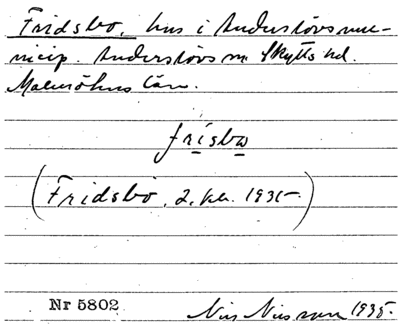 Fridsbo, hus i Anderslövs mu-
nicip. Anderslövs sn. Skytts hd.
Malmöhus län.
frisbω
(Fridsbo, 2. kl. 1935.)
Nr 5802
Nils Nilsson 1935.